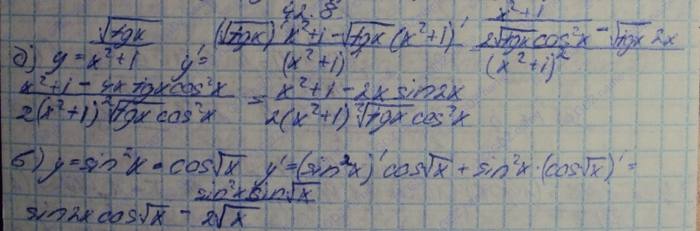 42.8
д) y = √tgx / x²+1   y' = (√tgx)' x²+1 - √tgx (x²+1)' / (x²+1)²   x²+1 / 2√tgx cos²x - √tgx 2x / (x²+1)²
x²+1 - 4x tgx cos²x / 2(x²+1)²√tgx cos²x = x²+1 - 2x sin2x / 2(x²+1)²√tgx cos²x
б) y = sin²x · cos√x   y' = (sin²x)' cos√x + sin²x · (cos√x)' =
sin2x cos√x - sin²x sin√x / 2√x